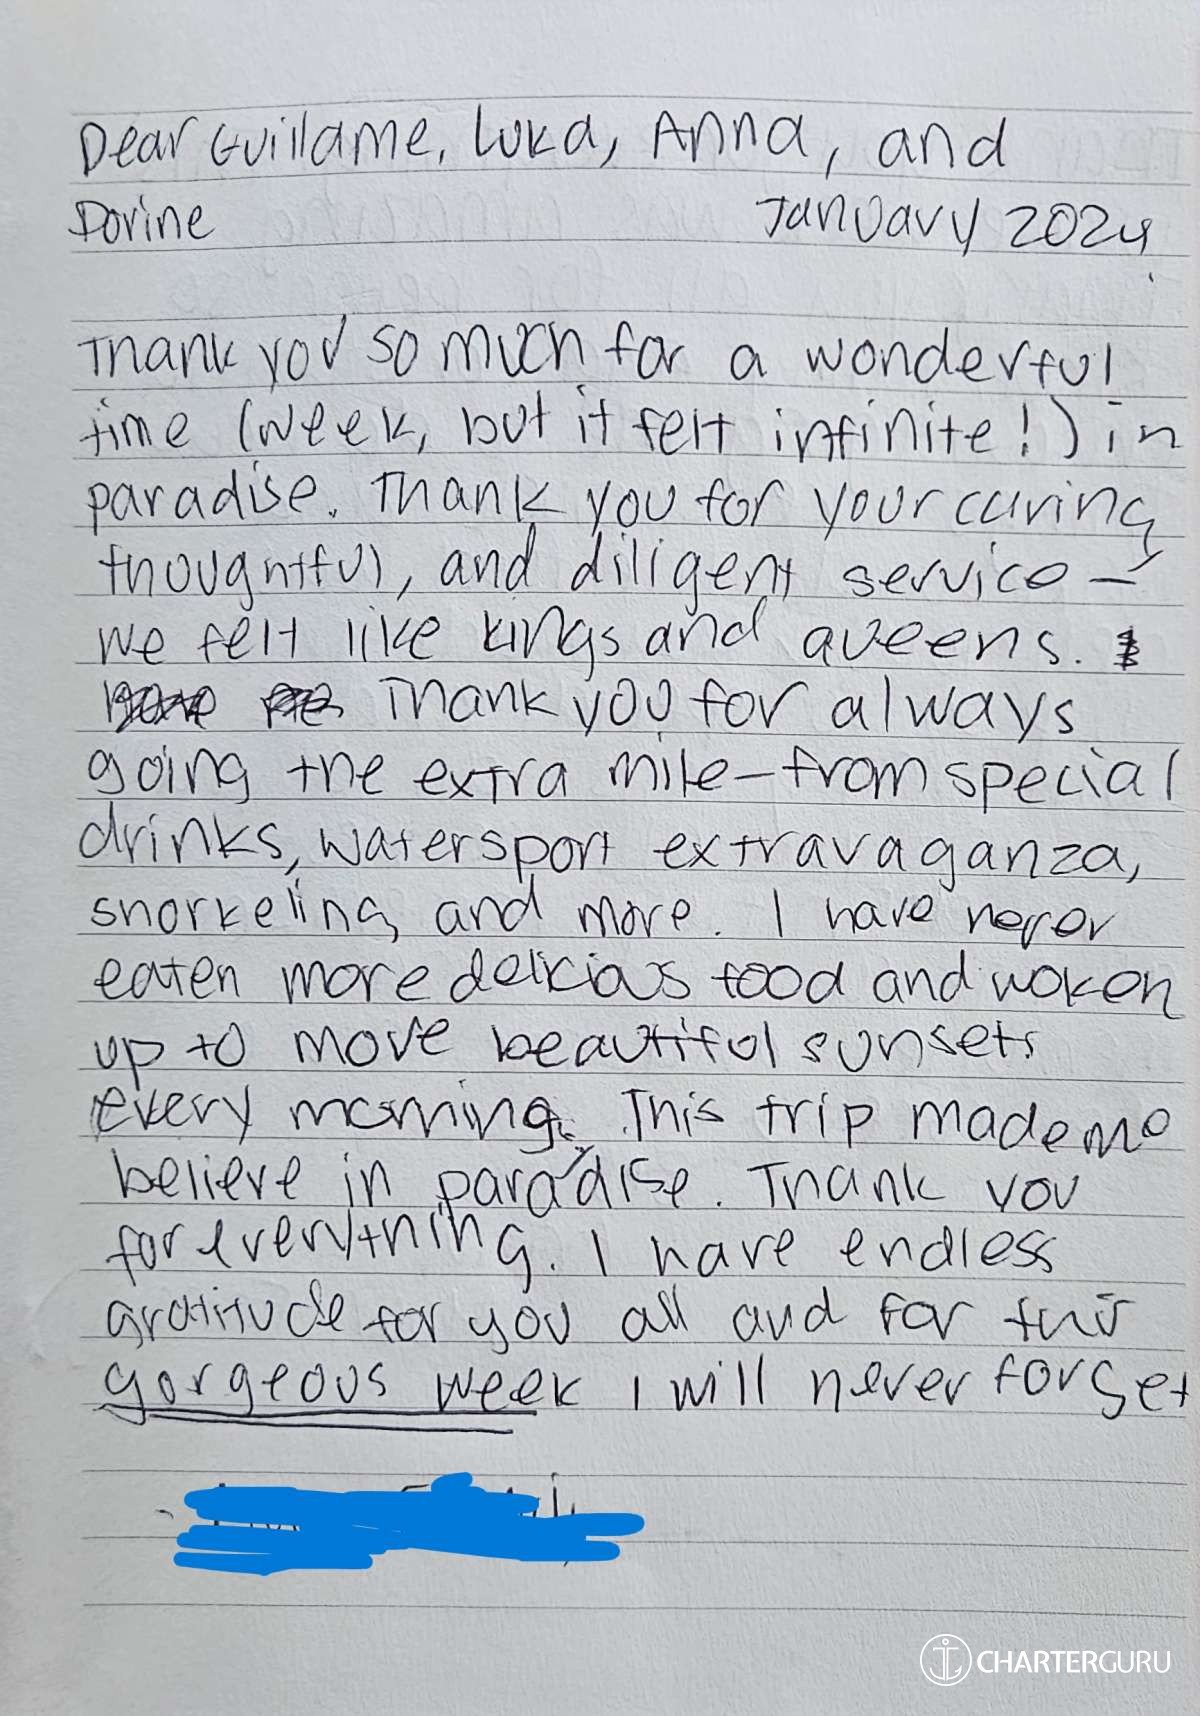 Dear Guillame, Luka, Anna, and
Dorine January 2024
Thank you so much for a wonderful
time (week, but it felt infinite!) in
paradise. Thank you for your caring,
thoughtful, and diligent service –
we felt like kings and queens.
Thank you for always
going the extra mile – from special
drinks, watersport extravaganza,
snorkeling and more. I have never
eaten more delicious food and woken
up to more beautiful sunsets
every morning. This trip made me
believe in paradise. Thank you
for everything. I have endless
gratitude for you all and for this
gorgeous week I will never forget
CHARTERGURU